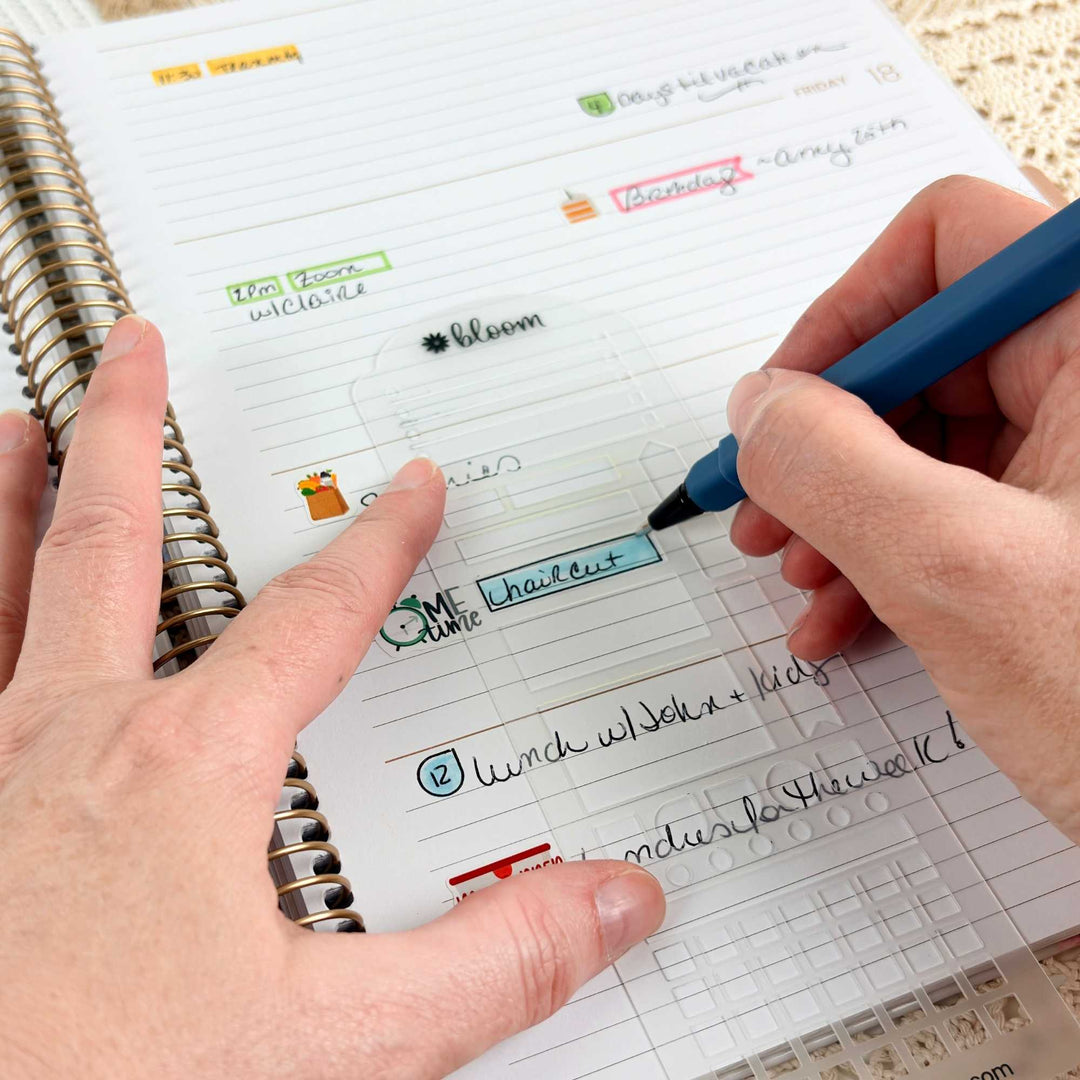 11:30
4 Days til vacation
FRIDAY 18
Birthday ~ amy 25th
2pm Zoom
w/Claire
bloom
ME
time
haircut
12 lunch w/ John + kids
for the week!
.com